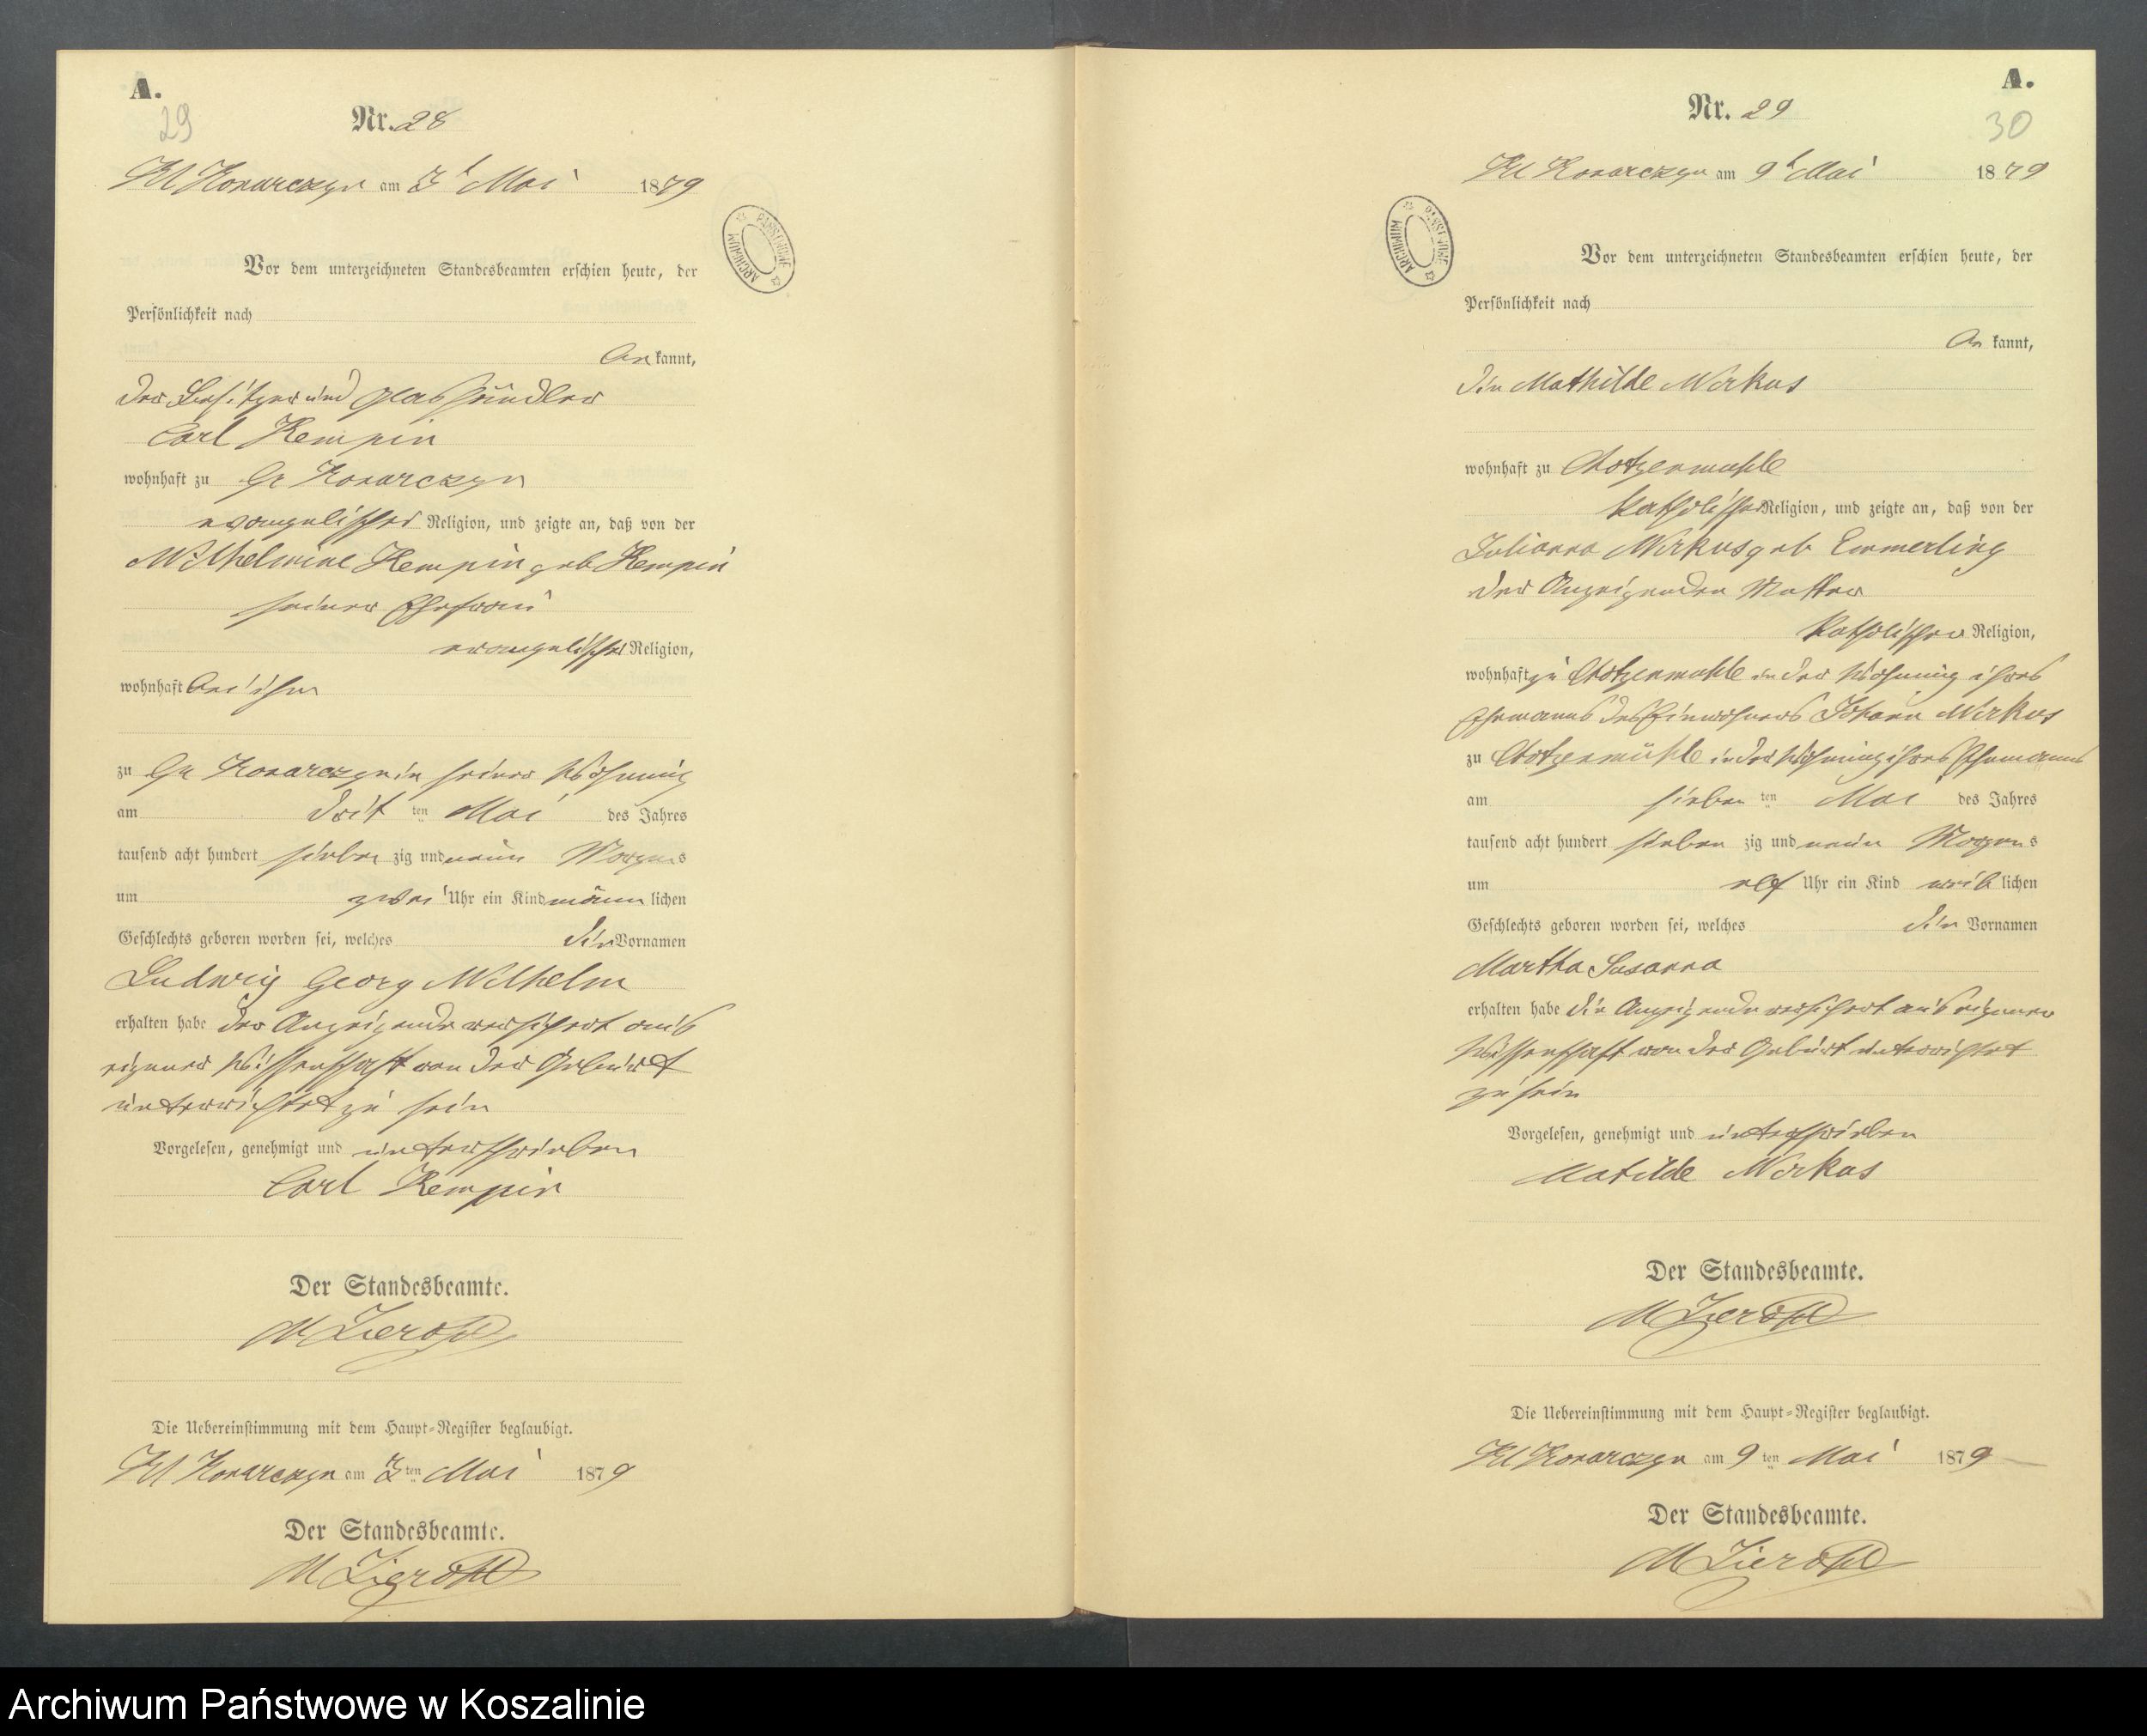 A.
29
Nr. 28
Kl Konarczyn am 3t Mai 1879
PAŃSTWOWE
ARCHIWUM
Vor dem unterzeichneten Standesbeamten erschien heute, der
Persönlichkeit nach
be kannt,
der Besitzer und Glashändler
Carl Kempin
wohnhaft zu Gr Konarczyn
evangelischer Religion, und zeigte an, daß von der
Wilhelmine Kempin geb Kempin
seiner Ehefrau
evangelischer Religion,
wohnhaft bei ihm
zu Gr Konarczyn in seiner Wohnung
am dritten Mai des Jahres
tausend acht hundert sieben zig und neun Morgens
um zwei Uhr ein Kind männlichen
Geschlechts geboren worden sei, welches die Vornamen
Ludwig Georg Wilhelm
erhalten habe der Anzeigende versichert aus
eigener Wissenschaft von der Geburt
unterrichtet zu sein
Vorgelesen, genehmigt und unterschrieben
Carl Kempin
Der Standesbeamte.
Die Uebereinstimmung mit dem Haupt-Register beglaubigt.
Kl Konarczyn am 3ten Mai 1879
Der Standesbeamte.
A.
30
Nr. 29
Kl Konarczyn am 9t Mai 1879
PAŃSTWOWE
ARCHIWUM
Vor dem unterzeichneten Standesbeamten erschien heute, der
Persönlichkeit nach
be kannt,
die Mathilde Wirkus
wohnhaft zu
katholischer Religion, und zeigte an, daß von der
Julianna Wirkus geb Emmerling
der Anzeigenden Mutter
katholischer Religion,
wohnhaft zu in der Wohnung ihres
Ehemanns des Einwohners Johann Wirkus
zu in der Wohnung ihres Ehemanns
am siebenten Mai des Jahres
tausend acht hundert sieben zig und neun Morgens
um elf Uhr ein Kind weiblichen
Geschlechts geboren worden sei, welches die Vornamen
Martha Susanna
erhalten habe die Anzeigende versichert aus eigener
Wissenschaft von der Geburt unterrichtet
zu sein
Vorgelesen, genehmigt und unterschrieben
Matilde Wirkus
Der Standesbeamte.
Die Uebereinstimmung mit dem Haupt-Register beglaubigt.
Kl Konarczyn am 9ten Mai 1879
Der Standesbeamte.
Archiwum Państwowe w Koszalinie